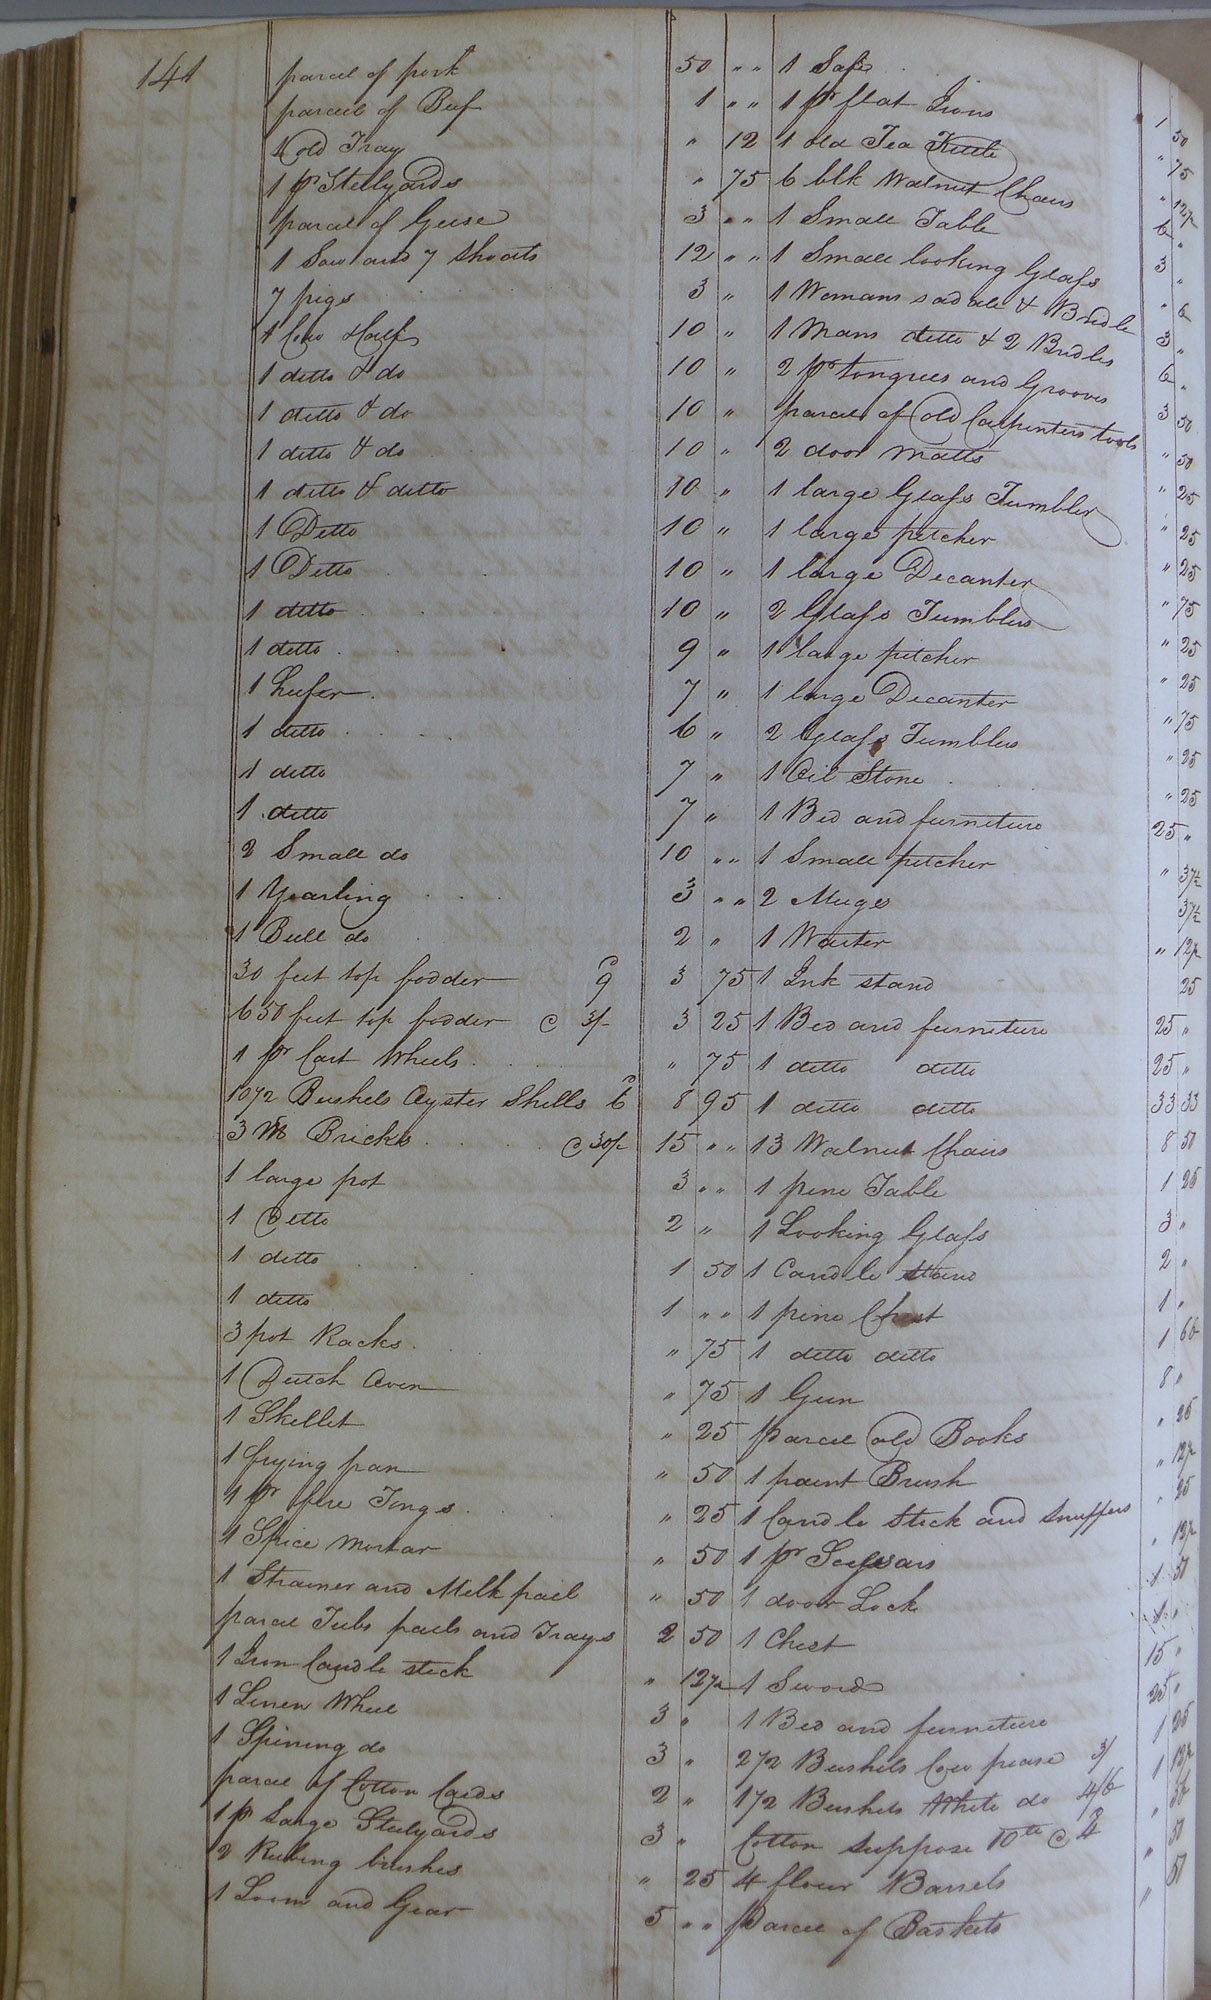 141
parcel of pork 50 " "
parcel of Beef 1 " "
1 old Tray " 12
1 pr Stellyards " 75
parcel of Geese 3 " "
1 Sow and 7 Shoats 12 " "
7 pigs 3 "
1 Cow & Calf 10 "
1 ditto & do 10 "
1 ditto & do 10 "
1 ditto & do 10 "
1 ditto & ditto 10 "
1 Ditto 10 "
1 Ditto 10 "
1 ditto 10 "
1 ditto 9 "
1 heifer 7 "
1 ditto 6 "
1 ditto 7 "
1 ditto 7 "
2 Small do 10 " "
1 Yearling 3 " "
1 Bull do 2 "
30 feet top fodder 9 3 75
650 feet top fodder @ 3/- 3 25
1 pr Cart Wheels " 75
1072 Bushels Oyster Shells 6 8 95
3 M Bricks @ 30/- 15 " "
1 large pot 3 " "
1 Ditto 2 "
1 ditto 1 50
1 ditto 1 " "
3 pot Racks " 75
1 Dutch Oven " 75
1 Skillet " 25
1 frying pan " 50
1 pr fire Tongs " 25
1 Spice Mortar " 50
1 Strainer and Milk pail " 50
parcel Tubs pails and Trays 2 50
1 Iron Candle stick " 12½
1 Linen Wheel 3 "
1 Spining do 3 "
parcel of Cotton Cards 2 "
1 pr Large Steelyards 3 "
2 Rubing brushes " 25
1 Loom and Gear 5 " "
1 Safe 1 50
1 pr flat Irons " 75
1 old Tea Kettle " 12½
6 blk Walnut Chairs 6 "
1 Small Table 3 "
1 Small looking Glass " 6
1 Womans sadale & Bridle 3 "
1 Mans ditto & 2 Bridles 6 "
2 pr tongues and Grooves 3 50
parcel of old Carpenters tools " 50
2 door Matts " 25
1 large Glass Tumbler " 25
1 large pitcher " 25
1 large Decanter " 75
2 Glass Tumblers " 25
1 large pitcher " 25
1 large Decanter " 75
2 Glass Tumblers " 25
1 Oil Stone " 25
1 Bed and furneture 25 "
1 Small pitcher " 37½
2 Mugs 37½
1 Waiter " 12½
1 Ink stand 25
1 Bed and furneture 25 "
1 ditto ditto 25 "
1 ditto ditto 33 33
13 Walnut Chairs 8 50
1 pine Table 1 25
1 Looking Glass 3 "
1 Candle Stand 2 "
1 pine Chest 1 "
1 ditto ditto 1 66
1 Gun 8 "
parcel old Books " 25
1 paint Brush " 12½
1 Candle Stick and Snuffers " 25
1 pr Scissars " 12½
1 door Lock 1 50
1 Chest 1 "
1 Sword 15 "
1 Bed and furneture 25 "
272 Bushels Cow pease 3/ 1 25
172 Bushels White do 4/6 1 12½
Cotton Suppose 10 lb @ " 36
4 flour Barrels " 50
parcel of Baskets " 50